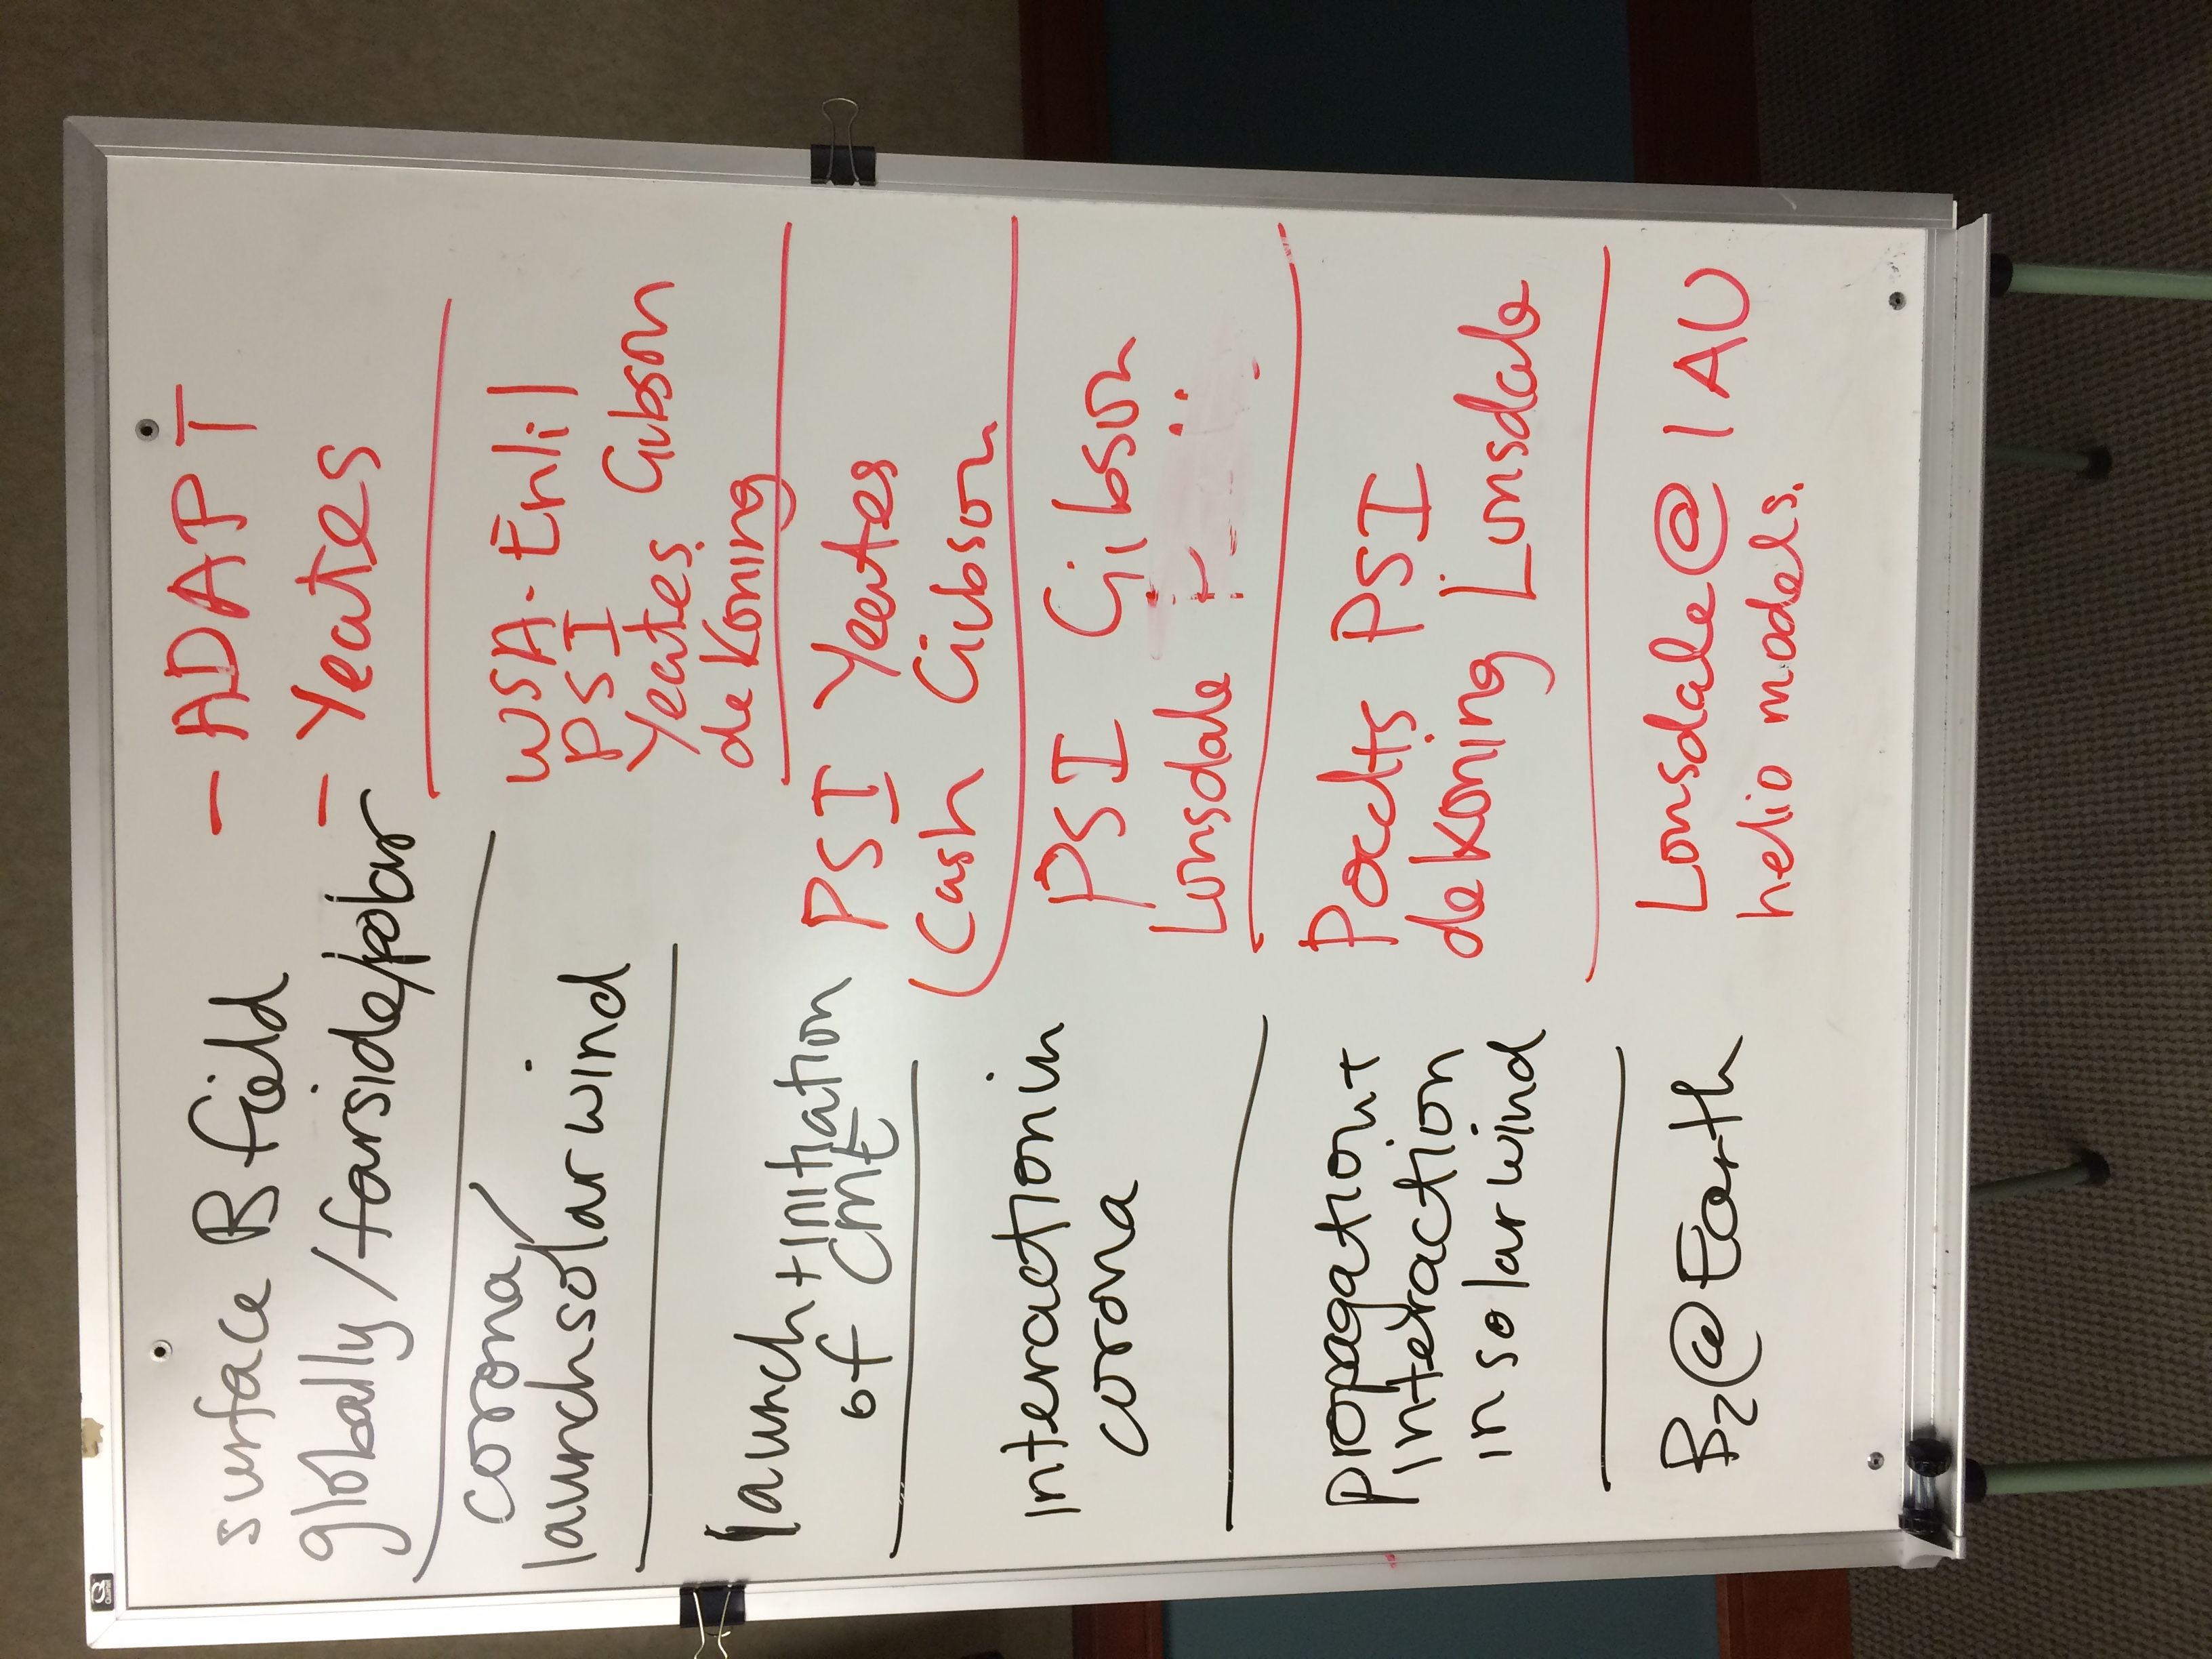 surface B field
globally/farside/polar
- ADAPT
- Yeates
corona/
launch solar wind
WSA-Enlil
PSI
Yeates Gibson
de Koning
launch + initiation
of CME
PSI Yeates
Cash Gibson
interaction in
corona
PSI Gibson
Lonsdale
propagation +
interaction
in solar wind
PSI
de Koning Lonsdale
Bz@Earth
Lonsdale@1AU
helio models.